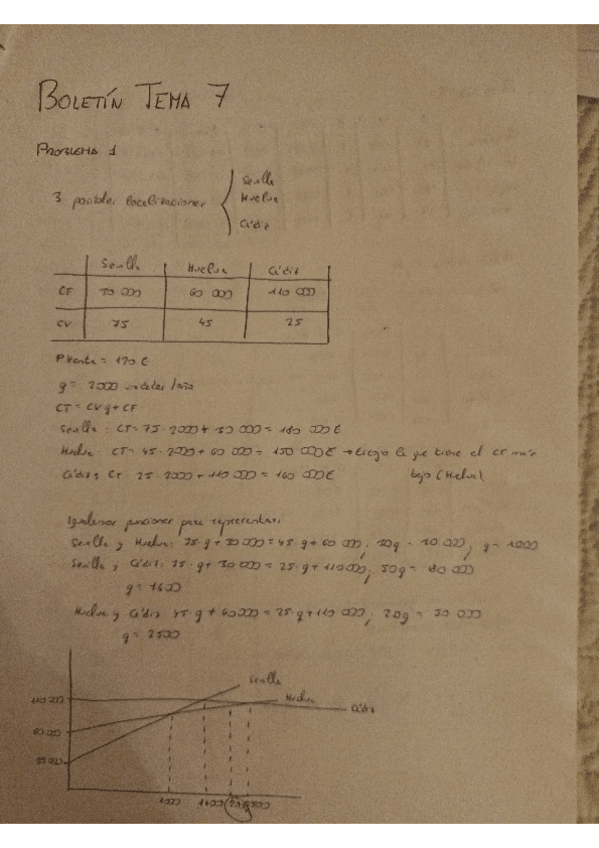 BOLETÍN TEMA 7
PROBLEMA 1
3 posibles localizaciones { Sevilla
Huelva
Cádiz
Sevilla Huelva Cádiz
CF 30 000 60 000 110 000
CV 75 45 25
Pventa = 120 €
q = 2000 unidades/año
CT = CV q + CF
Sevilla: CT = 75 · 2000 + 30 000 = 180 000 €
Huelva: CT = 45 · 2000 + 60 000 = 150 000 € → Escojo la que tiene el CT más
Cádiz CT: 25 · 2000 + 110 000 = 160 000 € bajo (Huelva)
Igualamos funciones para representar:
Sevilla y Huelva: 75·q + 30 000 = 45·q + 60 000; 30q = 30 000; q = 1000
Sevilla y Cádiz: 75·q + 30 000 = 25·q + 110 000; 50q = 80 000
q = 1600
Huelva y Cádiz: 45·q + 60000 = 25·q + 110 000; 20q = 50 000
q = 2500
Sevilla
Huelva
110 000 Cádiz
60 000
30 000
1000 1600 2000 2500